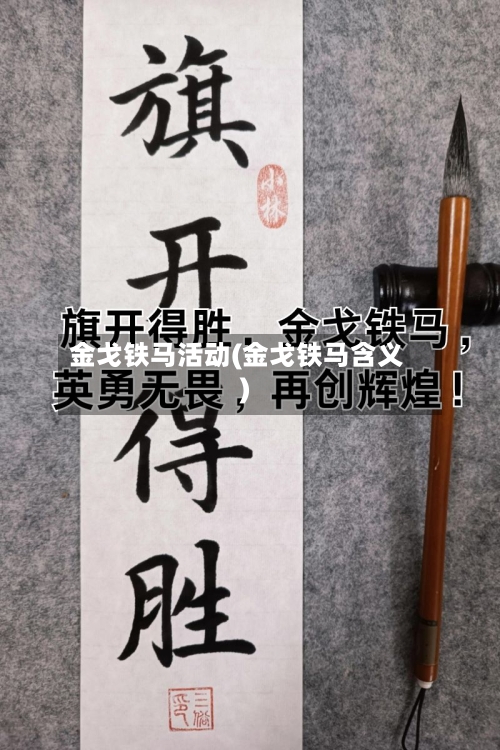 旗
开
得
胜
小林
旗开得胜，金戈铁马，
英勇无畏，再创辉煌！
金戈铁马活动(金戈铁马含义
)